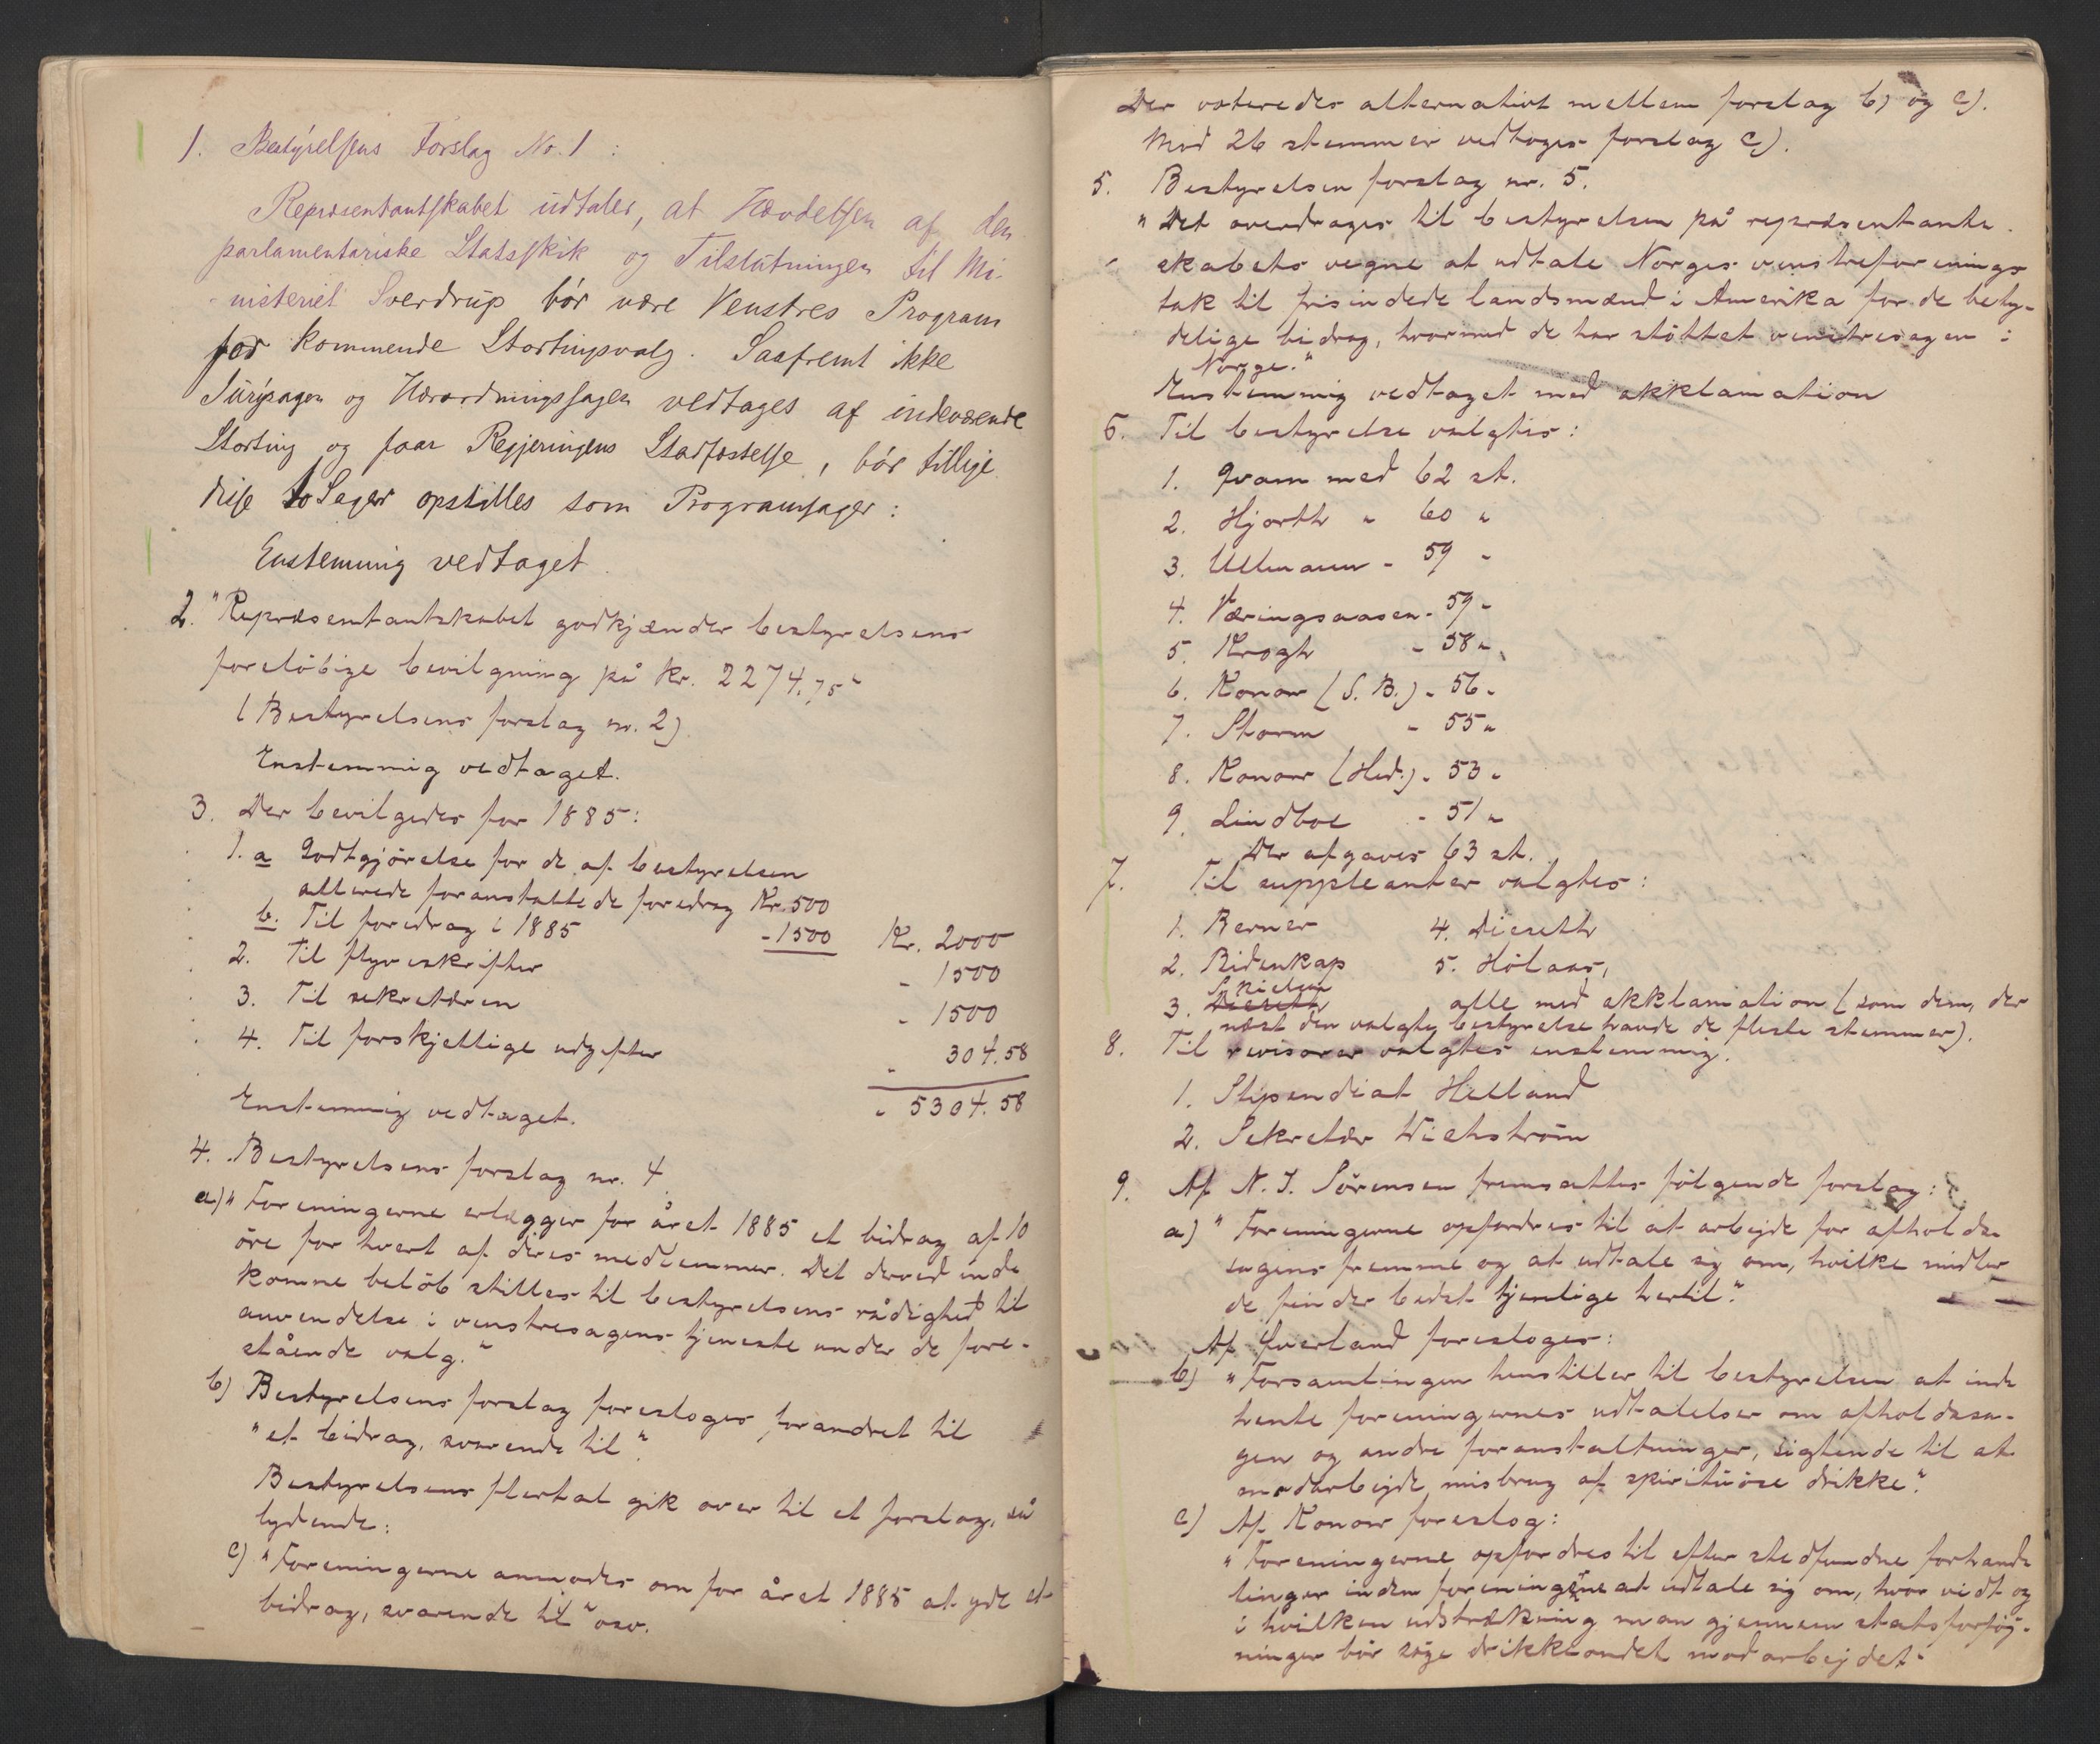 1. Bestyrelsens Forslag No. 1 :
Repræsentantskabet udtaler, at Hævdelsen af den
parlamentariske Statsskik og Tilslutningen til Mi-
nisteriet Sverdrup bör være Venstres Program
for kommende Stortingsvalg. Saafremt ikke
Jurysagen og Hærordningssagen vedtages af indeværende
Storting og faar Regjeringens Stadfæstelse, bör tillige
disse to Sager opstilles som Programsager :
Enstemmig vedtaget.
2. "Repræsentantskabet godkjænder bestyrelsens
foreløbige bevilgning på kr. 2274,75"
(Bestyrelsens forslag nr. 2)
Enstemmig vedtaget.
3. Der bevilgedes for 1885:
1. a Godtgjörelse for de af bestyrelsen
allerede foranstaltede foredrag Kr. 500
b. Til foredrag i 1885 - 1500 Kr. 2000
2. Til flyveskrifter - 1500
3. Til sekretæren - 1500
4. Til forskjellige udgifter - 304.58
Enstemmig vedtaget. " 5304.58
4. Bestyrelsens forslag nr. 4
a) "Foreningerne erlægger for året 1885 et bidrag af 10
öre for hvert af deres medlemmer. Det derved inde
komne belöb stilles til bestyrelsens rådighed til
anvendelse i venstresagens tjeneste under de fore-
stående valg."
b) Bestyrelsens forslag foresloges forandret til
"et bidrag, svarende til".
Bestyrelsens flertal gik over til et forslag, så
lydende:
c) "Foreningerne anmodes om for året 1885 at yde et
bidrag, svarende til" osv.
Der voteredes alternativt mellem forslag b) og c).
Mod 26 stemmer vedtoges forslag c).
5. Bestyrelsen forslag nr. 5.
"Det overdrages til bestyrelsen på repræsentant-
skabets vegne at udtale Norges venstreforenings
tak til frisindede landsmænd i Amerika for de bety-
delige bidrag, hvormed de har stöttet venstresagen i
Norge."
Enstemmig vedtaget med akklamation
6. Til bestyrelse valgtes :
1. Qvam med 62 st.
2. Hjorth " 60 "
3. Ullmann - 59 "
4. Væringsaasen - 59 "
5. Krogh - 58 "
6. Konow (S. B.) - 56 "
7. Storm - 55 "
8. Konow (Hed.) - 53 "
9. Lindboe - 51 "
Der afgaves 63 st.
7. Til suppleanter valgtes :
1. Berner 4. Dieseth
2. Bidenkap 5. Hölaas,
Skielsen
3. Dieseth alle med akklamation (som dem, der
næst den valgte bestyrelse havde de fleste stemmer).
8. Til revisorer valgtes enstemmig.
1. Stipendiat Helland
2. Sekretær Wichström
9. Af N. J. Sörensen fremsattes fölgende forslag:
a) "Foreningerne opfordres til at arbejde for afholds-
sagens fremme og at udtale sig om, hvilke midler
de finder bedst tjenlige hertil."
Af Qverland foresloges:
b) "Forsamlingen henstiller til bestyrelsen at ind-
hente foreningernes udtalelser om afholdssa-
gen og andre foranstaltninger, sigtende til at
modarbejde misbrug af spirituöse drikke".
c) Af Konow foreslog:
"Foreningerne opfordres til efter stedfundne forhand-
linger inden foreningerne at udtale sig om, hvor vidt og
i hvilken udstrækning man gjennem statsforföj-
ninger bör söge drikkeondet modarbejdet."